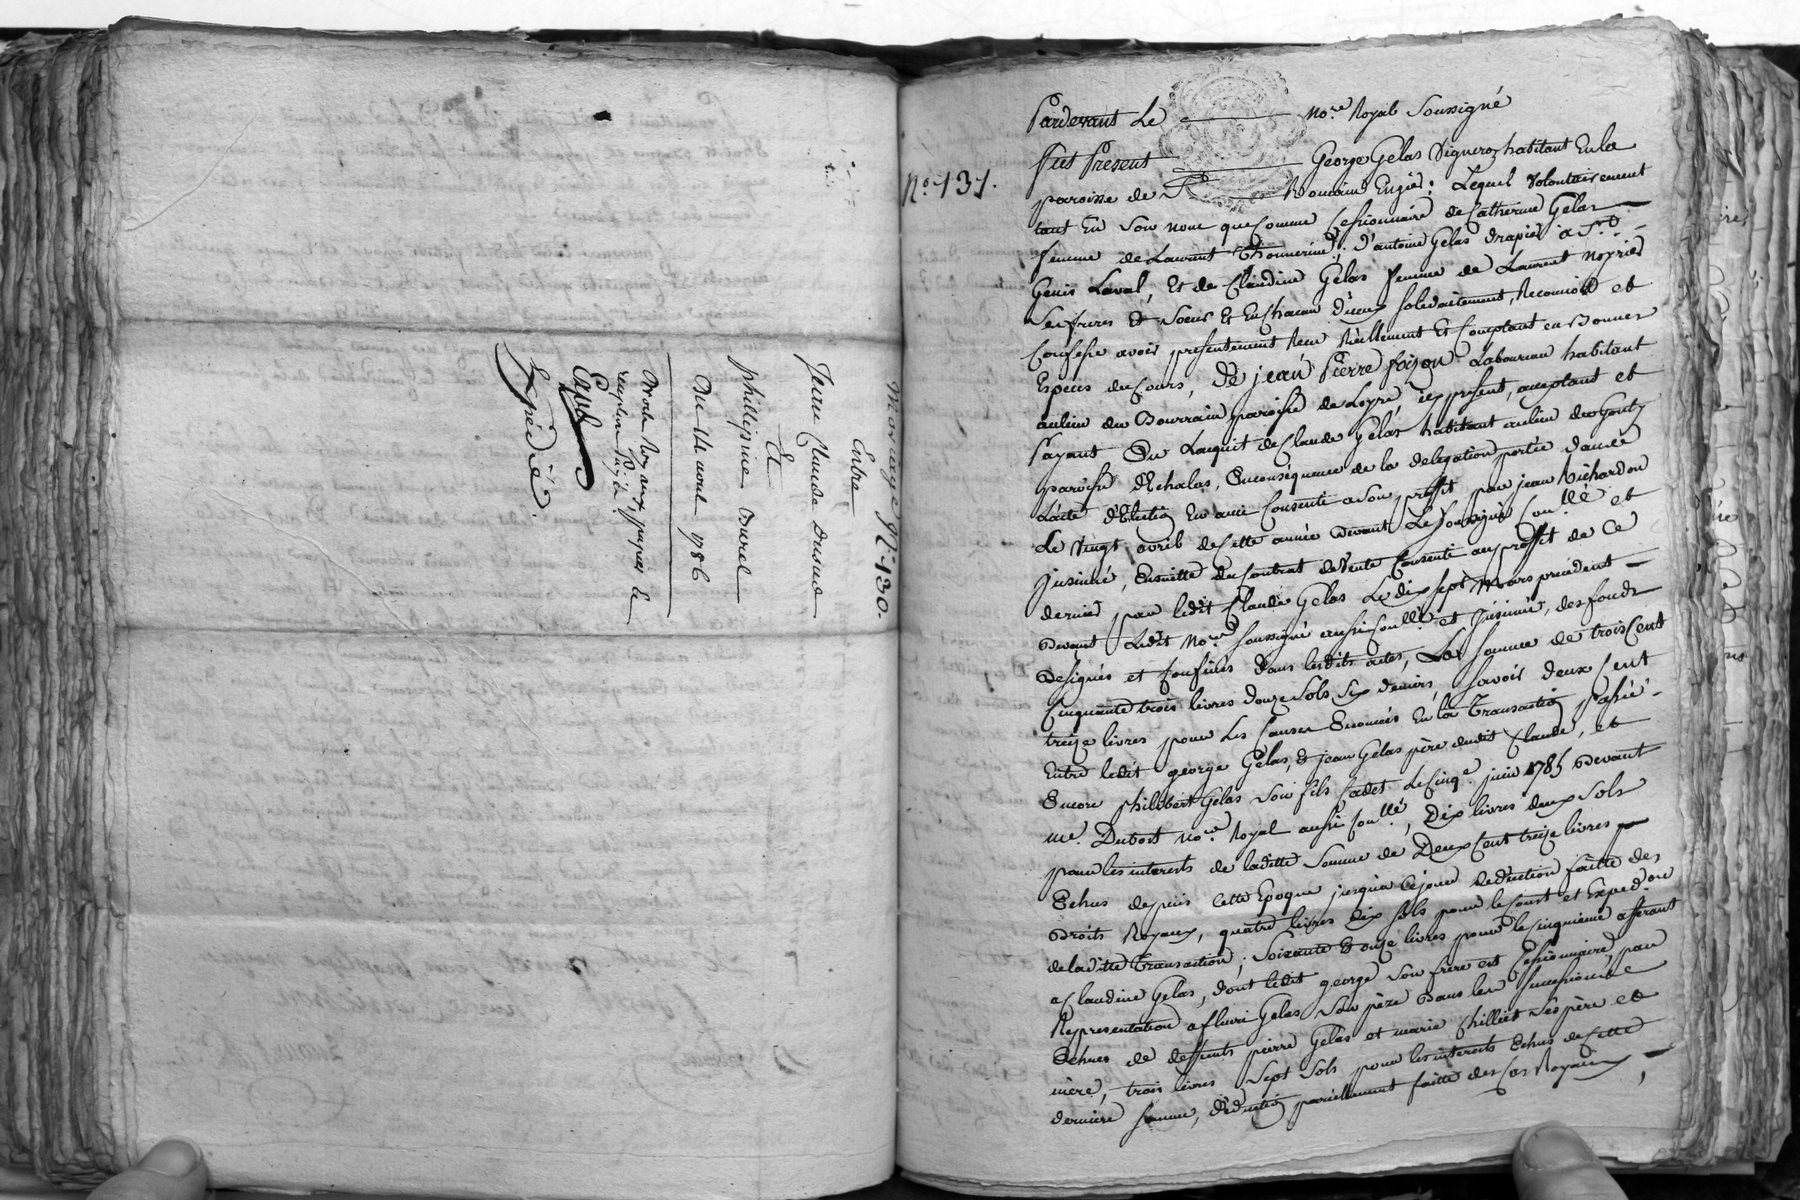 Mariage N.º 130.
Entre
Jean Claude Dumas
Et
phillipine Burel
Du 14 avril 1786
Droits Royaux, papier Le
reception payé
Expédié
N.º 131.
Pardevant Le no.re Royal Soussigné
Fut Present George Gelas Vigneron habitant En la
paroisse de St Romain Engier: Lequel volontairement
tant En son nom que Comme Cessionnaire de Catherine Gelas
femme de Laurent Thonnerieux, d'antoine Gelas drapier a St
Genis Laval, Et de Claudine Gelas femme de Laurent noyrier
Ses freres Et Soeurs Et En Chacun d'iceux solidairement, Reconnoit et
Confesse avoir presentement Recu Réellement Et Comptant en Bonnes
Especes du Cours, De jean Pierre foizon Laboureur habitant
au lieu du Bourrain paroisse de Loyre icy present, acceptant et
Payant En L'acquit de Claude Gelas habitant au lieu du Gouty
paroisse d'Echalas, En consequence de la delegation portée dans
L'acte d'Election En ami Consentie a Son proffit par jean Richardon
Le vingt avril de Cette année devant Le Soussigné Con.llé et
jnsinué, Ensuitte du Contrat de Vente Consenti au proffit de Ce
dernier par ledit Claude Gelas Le dix sept Mars precedent
devant Ledit No.re soussigné aussi Con.llé et jnsinué, des fonds
designés et Confinés dans lesdits actes, La somme de trois Cent
Cinquante trois livres douze sols Six deniers, Savoir deux Cent
treize livres pour les Causes Enoncées En la transaction passée
Entre ledit george Gelas, & jean Gelas père dudit Claude, et
Encore philibert Gelas son fils Cadet Le Cinq.e juin 1785 devant
me. Dubost no.re Royal aussi Con.llé, Dix livres deux sols
pour les interests de laditte Somme de Deux Cent treize livres
Echus depuis Cette Epoque jusqu'a Ce jour deduction faitte des
droits Royaux, quatre livres dix sols pour le Court et Exped.on
de laditte transaction; soixante & onze livres pour le cinquieme afferant
a Claudine Gelas, dont ledit george son frere est Cessionnaire, par
Representation a fleuri Gelas son père dans les successions
Echues de deffunts pierre Gelas et marie Chillet Ses père et
mère, trois livres Sept Sols pour les interests Echus de Cette
derniere somme, déduction pareillement faitte des Cas Royaux,